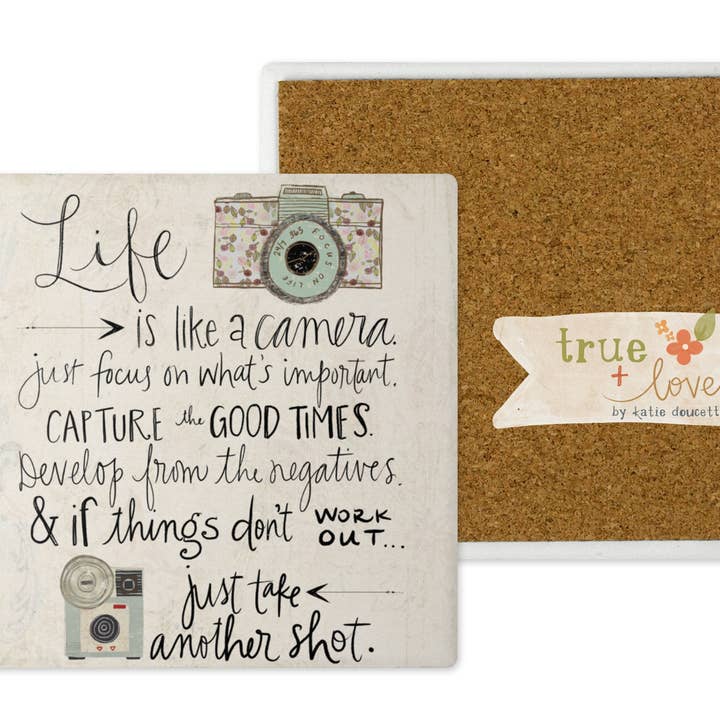 Life
is like a camera.
just focus on what's important.
CAPTURE the GOOD TIMES.
Develop from the negatives.
& if things don't WORK OUT...
just take
another shot.
24/7 365 FOCUS ON LIFE
true
+ love
by katie doucett